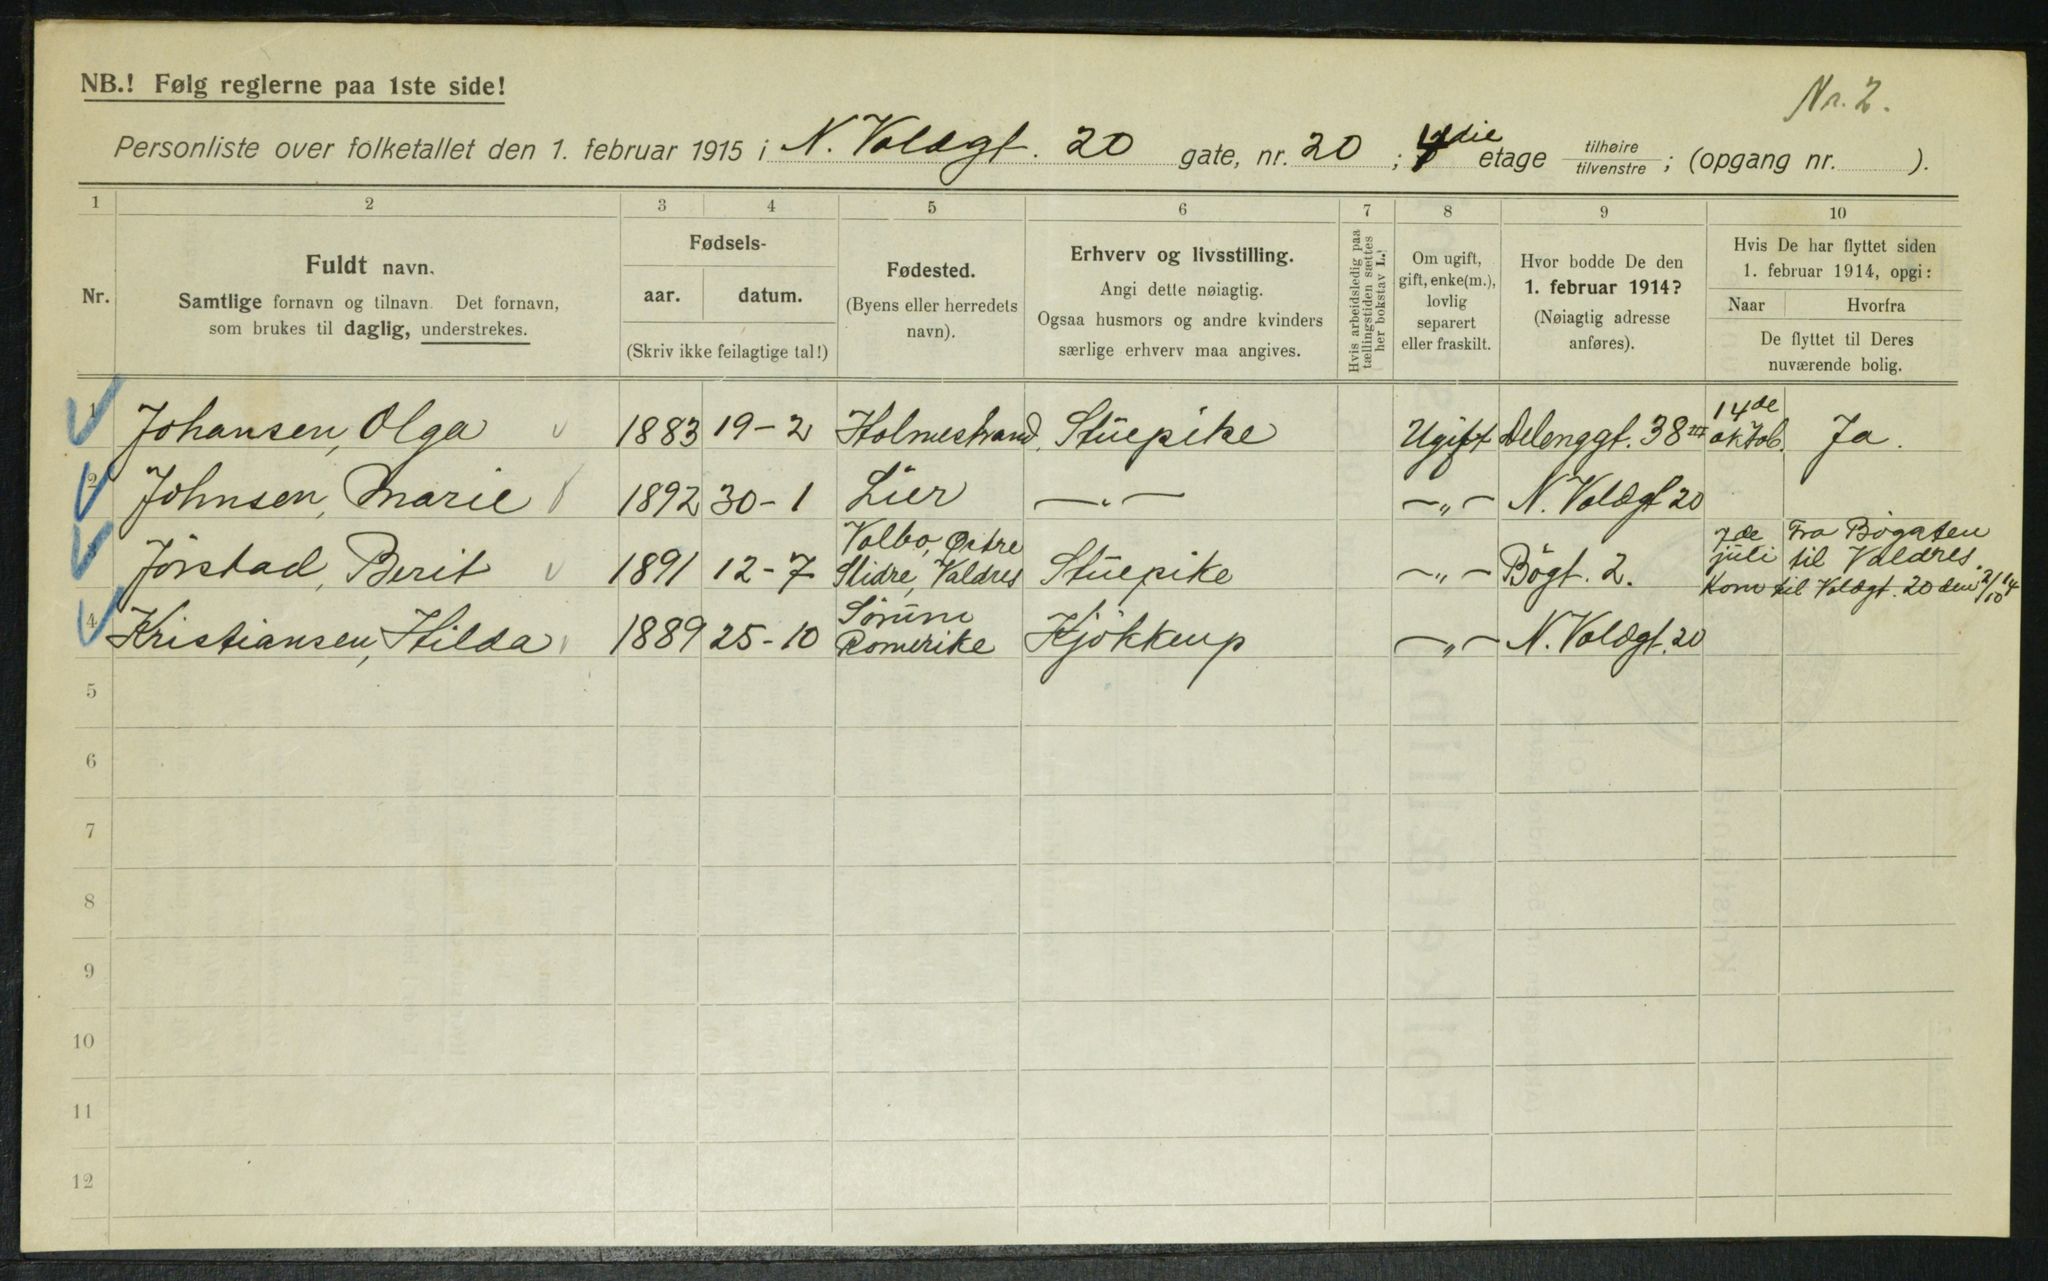 NB.! Følg reglerne paa 1ste side!
Nr. 2.
Personliste over folketallet den 1. februar 1915 i N. Voldgt. 20 gate, nr. 20 ; 4die etage tilhøire tilvenstre ; (opgang nr. ).
1 2 3 4 5 6 7 8 9 10
Nr.
Fuldt navn.
Samtlige fornavn og tilnavn. Det fornavn,
som brukes til daglig, understrekes.
Fødsels-
aar. datum.
(Skriv ikke feilagtige tal!)
Fødested.
(Byens eller herredets
navn).
Erhverv og livsstilling.
Angi dette nøiagtig.
Ogsaa husmors og andre kvinders
særlige erhverv maa angives.
Hvis arbeidsledig paa
tællingstiden sættes
her bokstav L.!
Om ugift,
gift, enke(m.),
lovlig
separert
eller fraskilt.
Hvor bodde De den
1. februar 1914?
(Nøiagtig adresse
anføres).
Hvis De har flyttet siden
1. februar 1914, opgi:
Naar Hvorfra
De flyttet til Deres
nuværende bolig.
1 Johansen, Olga 1883 19-2 Holmestrand. Stuepike Ugift Delenggt. 38 III 14de oktob. Ja.
2 Johnsen, Marie 1892 30-1 Lier —"— —"— N. Voldgt 20
Jörstad, Berit 1891 12-7 Volbo, Østre Slidre, Valdres Stuepike —"— Bögt. 2. 7de juli Fra Bögaten til Valdres. Kom til Voldgt. 20 den 2/10 14
4 Kristiansen, Hilda 1889 25-10 Sörum Romerike Kjökkenp —"— N. Voldgt. 20
5
6
7
8
9
10
11
12